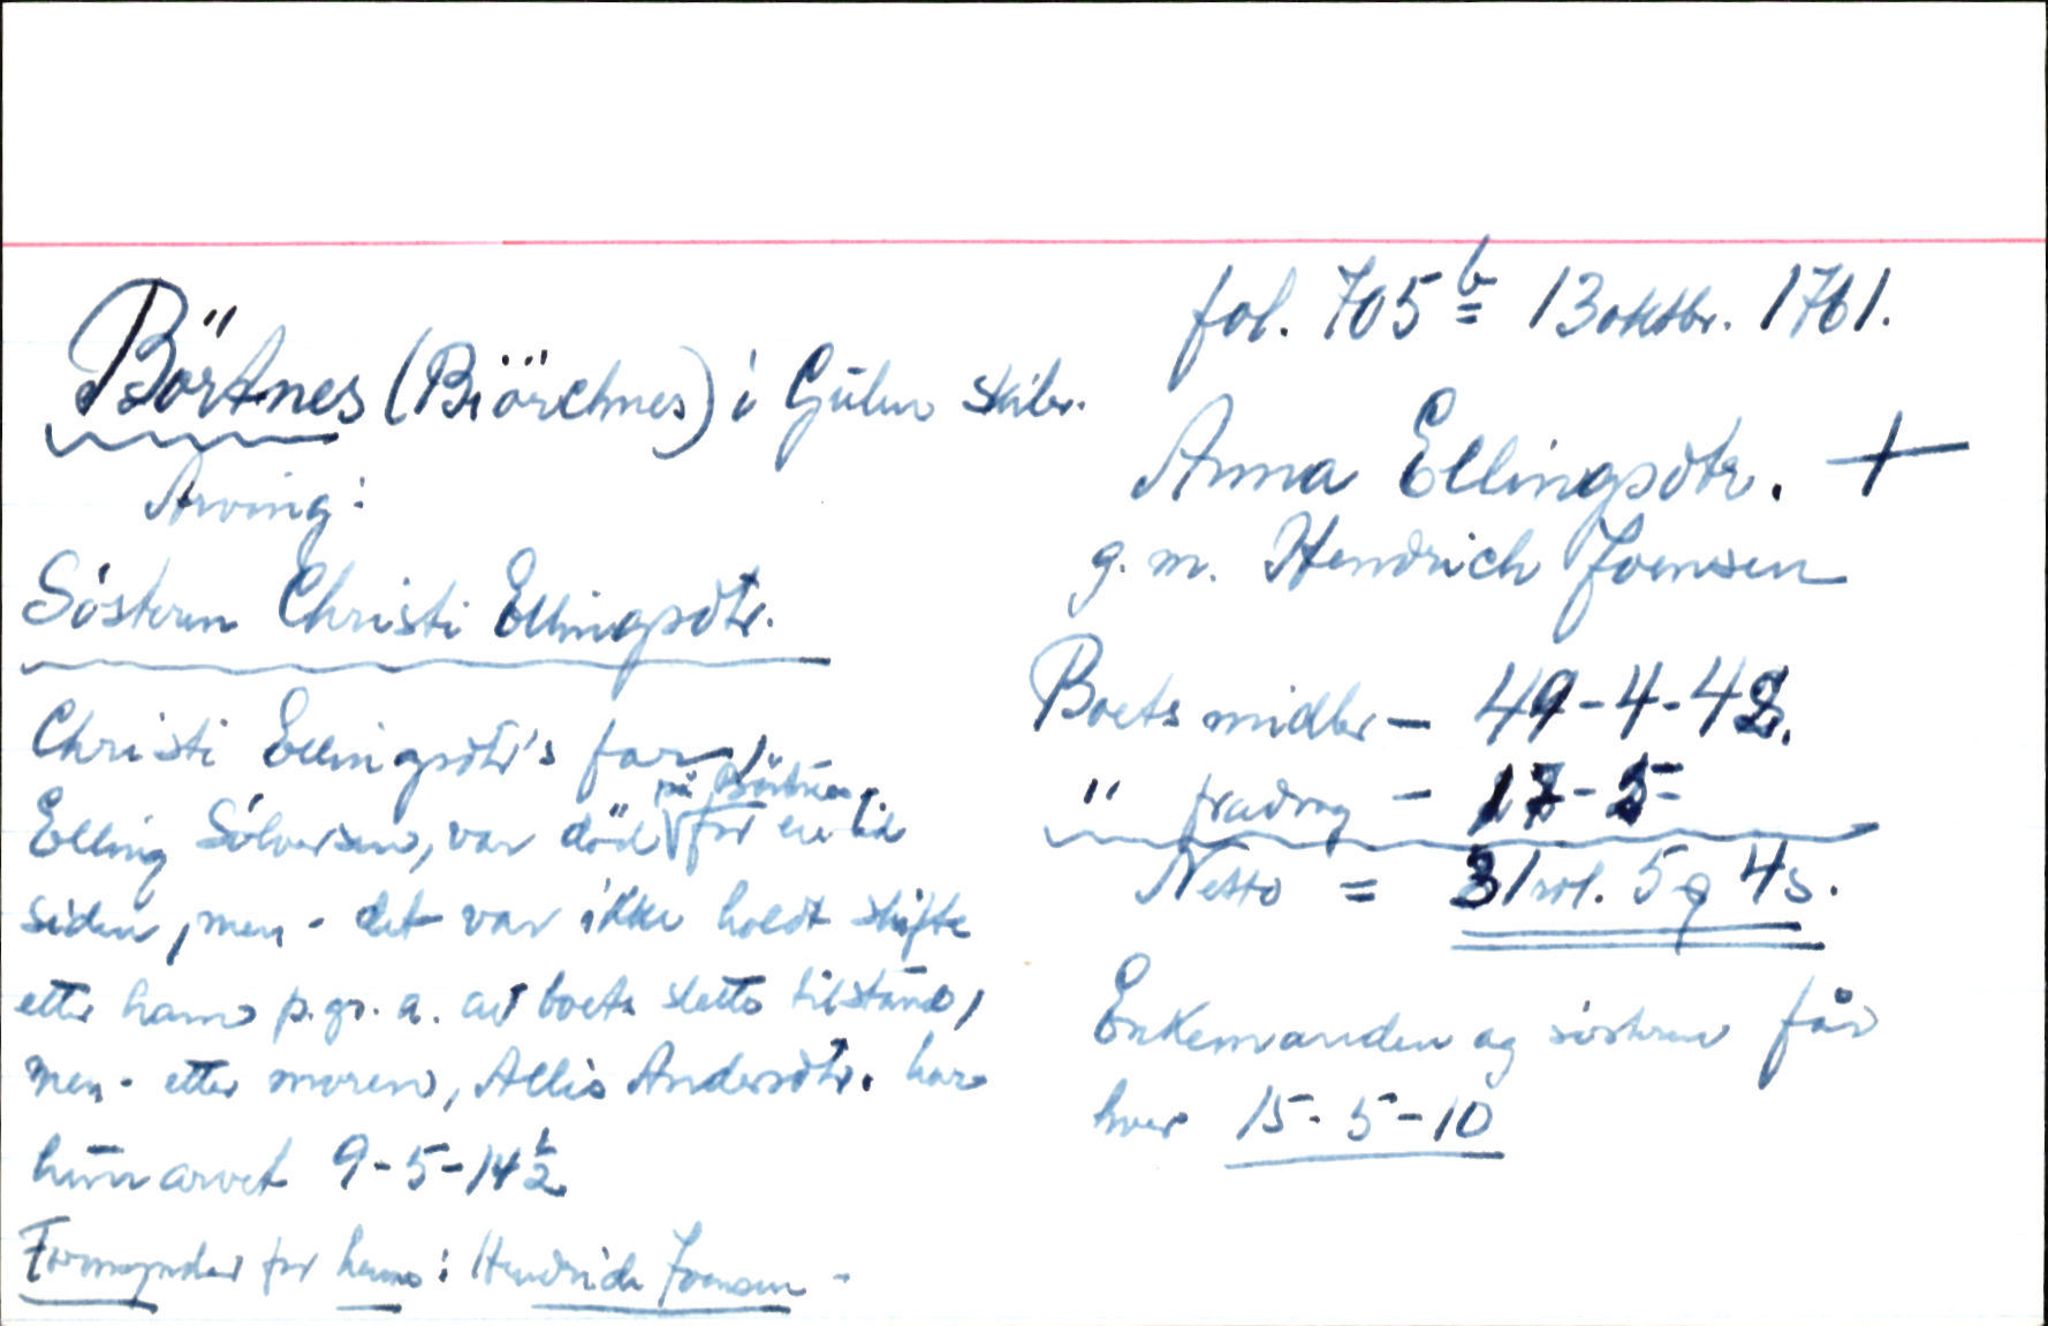 Börtnes (Biörchnes) i Gulen skibr.
Arving:
Søsteren Christi Ellingsdtr.
Christi Ellingsdtr's far,
på Börtnes
Elling Sølversen, var död for en tid
siden, men - det var ikke holdt skifte
etter ham p.gr.a. av boets slette tilstand,
men - etter moren, Allis Andersdtr. har
hun arvet 9-5-14½
Formynder for henne: Hendrich Joensen -
fol. 705b 13 oktbr. 1761.
Anna Ellingsdtr. +
g.m. Hendrich Joensen
Boets midler - 49-4-4 s.
" fradrag - 17-5-
Netto = 31 rdl. 5 q 4 s.
Enkemanden og søsteren får
hver 15-5-10